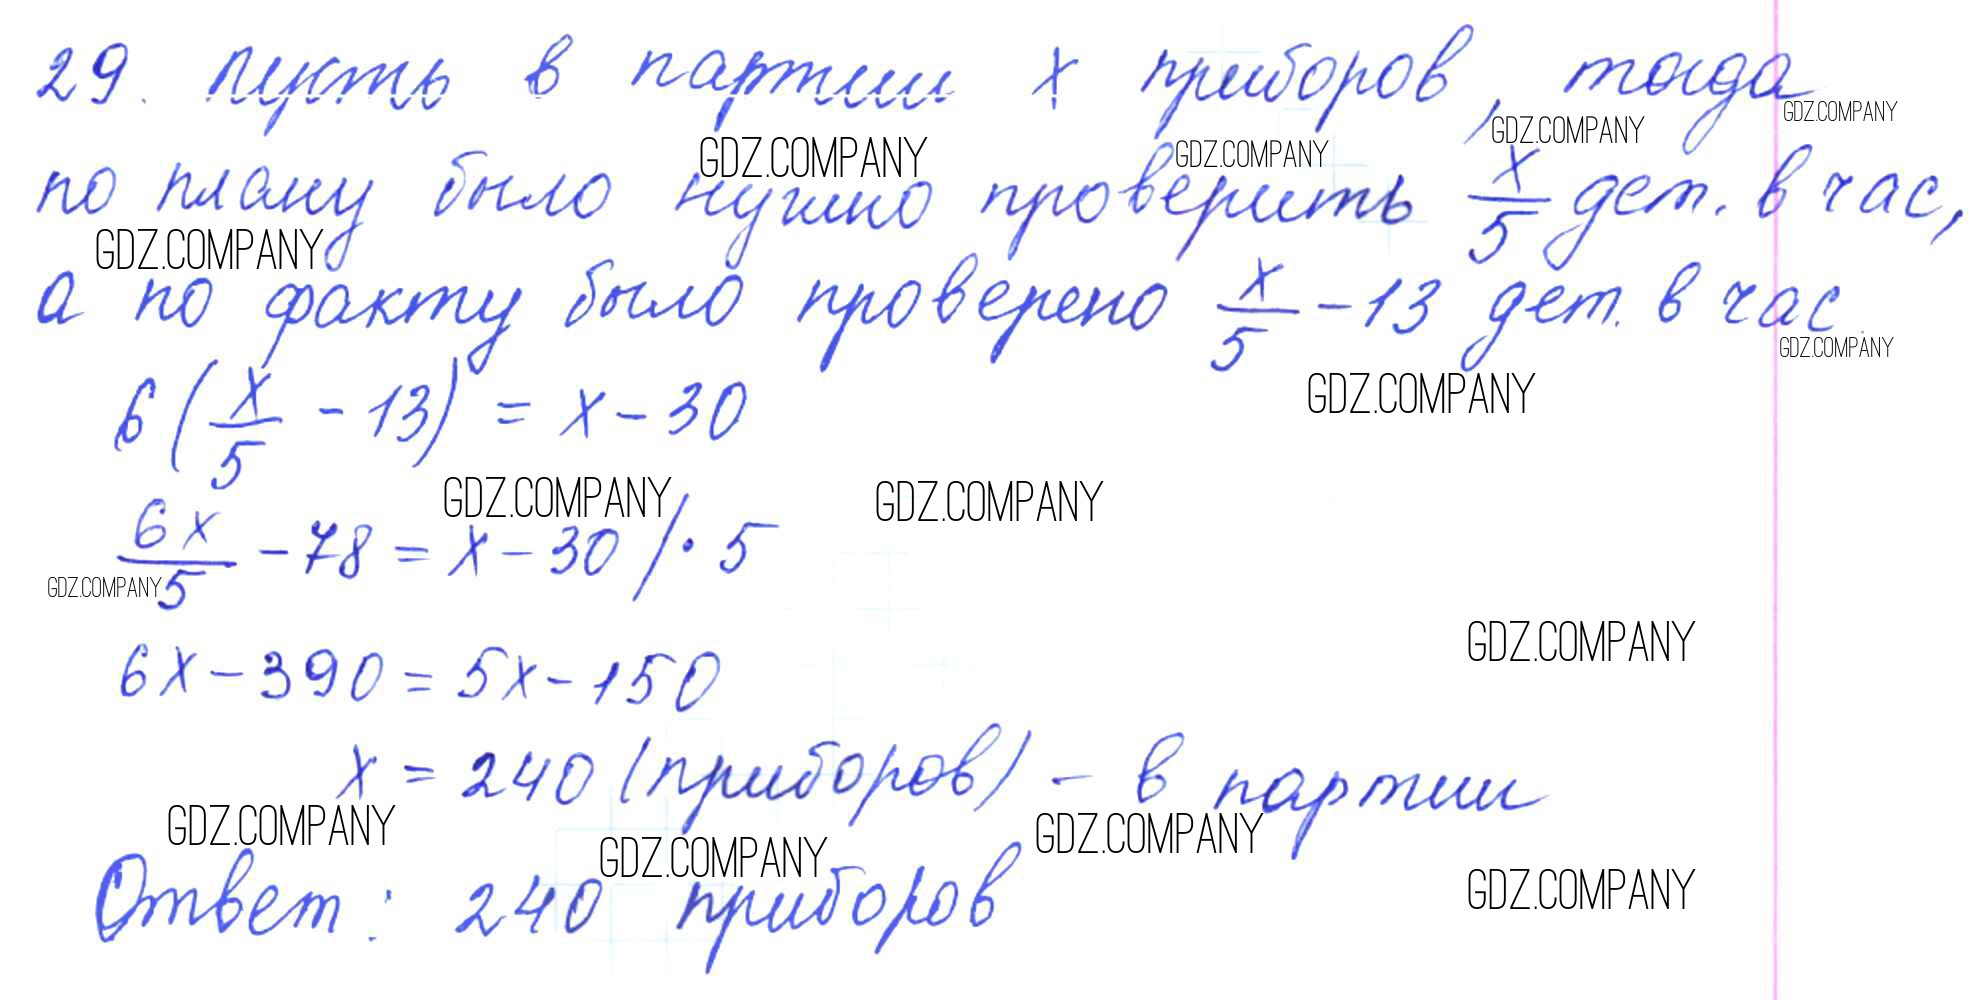 29. Пусть в партии x приборов, тогда
GDZ.COMPANY
GDZ.COMPANY
GDZ.COMPANY GDZ.COMPANY
по плану было нужно проверить x/5 дет. в час,
GDZ.COMPANY
а по факту было проверено x/5 - 13 дет. в час
GDZ.COMPANY
GDZ.COMPANY
6(x/5 - 13) = x - 30
GDZ.COMPANY GDZ.COMPANY
6x/5 - 78 = x - 30 / · 5
GDZ.COMPANY
GDZ.COMPANY
6x - 390 = 5x - 150
x = 240 (приборов) - в партии
GDZ.COMPANY GDZ.COMPANY GDZ.COMPANY
GDZ.COMPANY
Ответ: 240 приборов